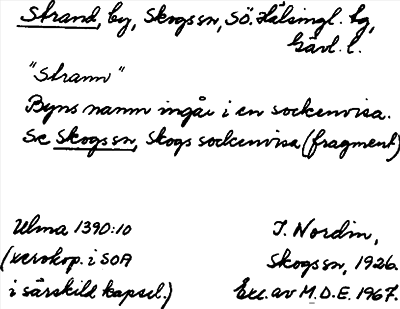 Strand, by, Skogs sn, Sö. Hälsingl. tg,
Gävl. l.
"Strann"
Byns namn ingår i en sockenvisa.
Se Skogs sn, Skogs sockenvisa (fragment)
Ulma 1390:10
(xerokop. i SOA
i särskild kapsel.)
J. Nordin,
Skogs sn, 1926.
Exc. av M.D.E. 1967.